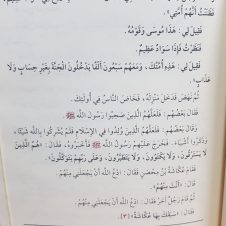 فَظَنَنْتُ أَنَّهُمْ أُمَّتِي.
فَقِيلَ لِي: هَذَا مُوسَى وَقَوْمُهُ.
فَنَظَرْتُ فَإِذَا سَوَادٌ عَظِيمٌ.
فَقِيلَ لِي: هَذِهِ أُمَّتُكَ، وَمَعَهُمْ سَبْعُونَ أَلْفًا يَدْخُلُونَ الْجَنَّةَ بِغَيْرِ حِسَابٍ وَلَا
عَذَابٍ».
ثُمَّ نَهَضَ فَدَخَلَ مَنْزِلَهُ، فَخَاضَ النَّاسُ فِي أُولَئِكَ.
فَقَالَ بَعْضُهُمْ: فَلَعَلَّهُمُ الَّذِينَ صَحِبُوا رَسُولَ اللَّهِ ﷺ.
وَقَالَ بَعْضُهُمْ: فَلَعَلَّهُمُ الَّذِينَ وُلِدُوا فِي الْإِسْلَامِ فَلَمْ يُشْرِكُوا بِاللَّهِ شَيْئًا،
وَذَكَرُوا أَشْيَاءَ. فَخَرَجَ عَلَيْهِمْ رَسُولُ اللَّهِ ﷺ فَأَخْبَرُوهُ، فَقَالَ: «هُمُ الَّذِينَ
لَا يَسْتَرْقُونَ، وَلَا يَكْتَوُونَ، وَلَا يَتَطَيَّرُونَ، وَعَلَى رَبِّهِمْ يَتَوَكَّلُونَ».
فَقَامَ عُكَّاشَةُ بْنُ مِحْصَنٍ فَقَالَ: ادْعُ اللَّهَ أَنْ يَجْعَلَنِي مِنْهُمْ.
قَالَ: «أَنْتَ مِنْهُمْ».
ثُمَّ قَامَ رَجُلٌ آخَرُ فَقَالَ: ادْعُ اللَّهَ أَنْ يَجْعَلَنِي مِنْهُمْ.
فَقَالَ: «سَبَقَكَ بِهَا عُكَّاشَةُ» (٣).